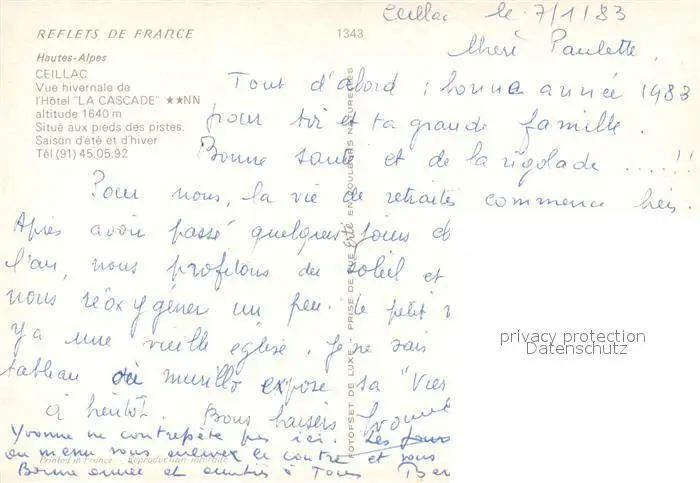 REFLETS DE FRANCE
1343
Hautes-Alpes
CEILLAC
Vue hivernale de
l'Hôtel "LA CASCADE" ★★NN
altitude 1640 m
Situé aux pieds des pistes.
Saison d'été et d'hiver
Tél (91) 45.05.92
Ceillac le 7/1/83
Chère Paulette,
Tout d'abord : bonne année 1983
pour toi et ta grande famille.
Bonne santé et de la rigolade .....!!
Pour nous, la vie de retraités commence bien.
Après avoir passé quelques jours
l'an, nous profitons du soleil et
nous réoxygéner un peu. Le petit
ya une vieille église. Je ne sais
tableau de murillo expose sa "Vier
à bientôt. Bons baisers Yvonne
Yvonne ne contrepète pas ici. Les
au menu vous et vous
Bonne année et amitiés à Tous
PHOTOFSET DE LUXE PRISE DE VUE EN COULEURS NATURELLES
Printed in France - Reproduction interdite
privacy protection
Datenschutz